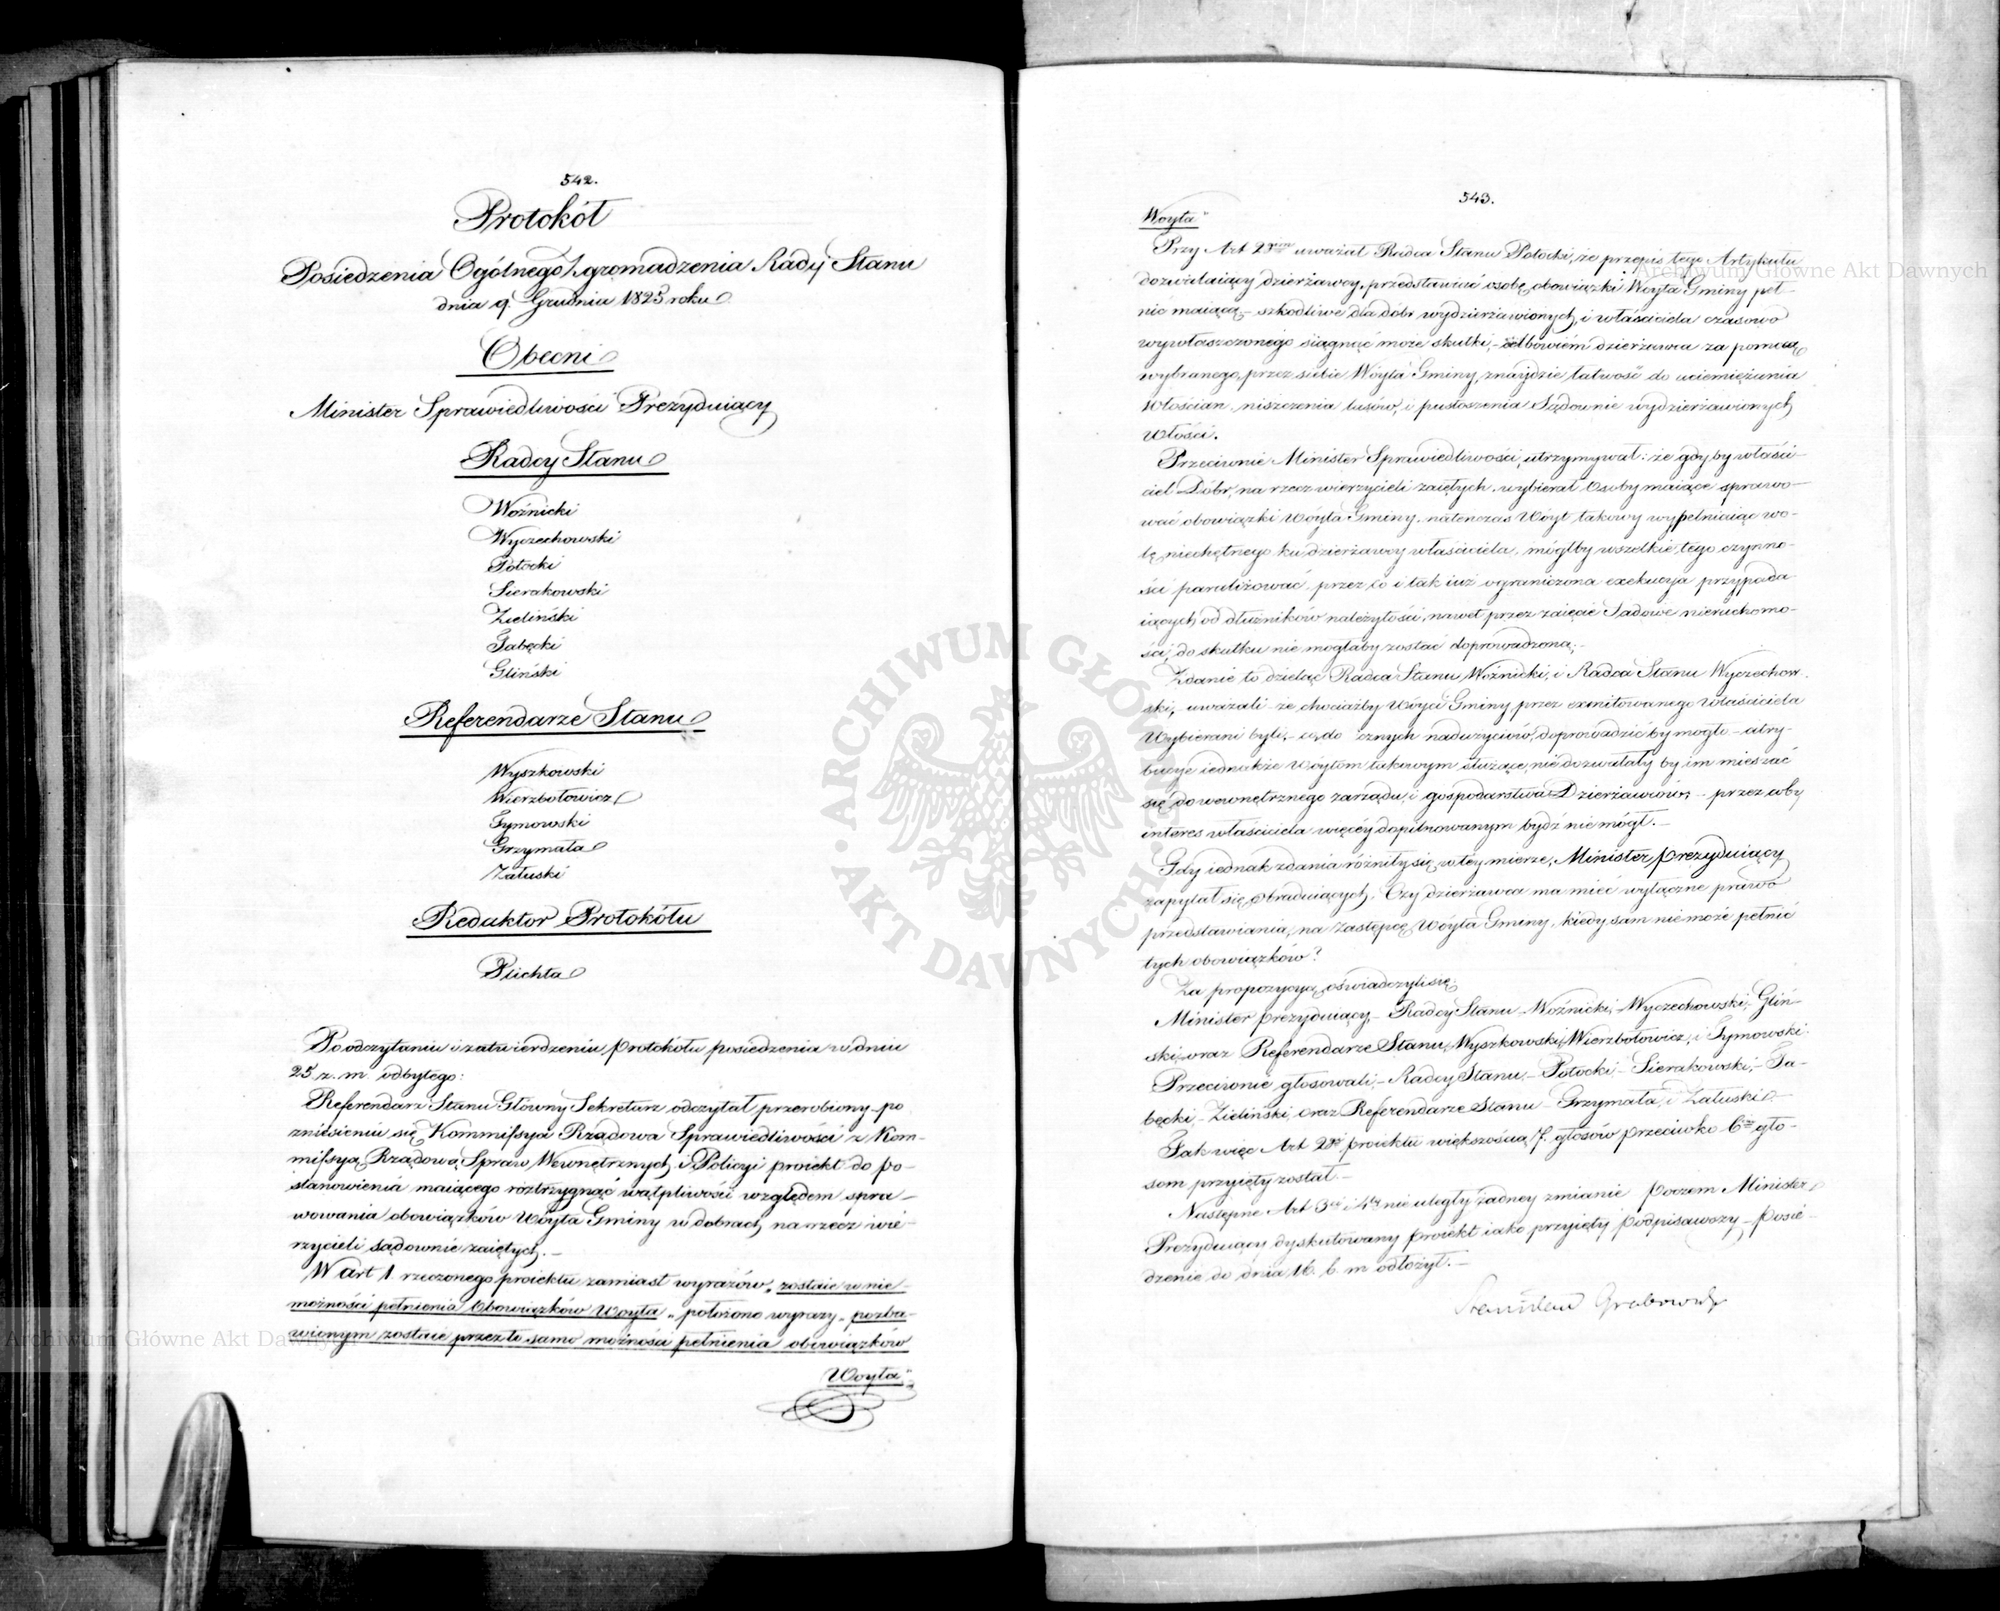 542.
Protokół
Posiedzenia Ogólnego Zgromadzenia Rady Stanu
dnia 9. Grudnia 1825 roku
Obecni
Minister Sprawiedliwości Prezyduiący
Radcy Stanu
Woźnicki
Wyczechowski
Potocki
Sierakowski
Zieliński
Gabęcki
Gliński
Referendarze Stanu
Wyszkowski
Wierzbołowicz
Tymowski
Grzymała
Załuski
Redaktor Protokółu
Plichta
Po odczytaniu i zatwierdzeniu protokółu posiedzenia w dniu
25. z. m. odbytego:
Referendarz Stanu Główny Sekretarz odczytał przerobiony po
zniesieniu się Kommissya Rządowa Sprawiedliwości z Kom-
missyą Rządową Spraw Wewnętrznych i Policyi proiekt do po-
stanowienia maiącego roztrzygnąć wątpliwości względem spra-
wowania obowiązków Wóyta Gminy w dobrach na rzecz wie-
rzycieli sądownie zaiętych.-
W art 1. rzeczonego proiektu zamiast wyrazów „zostaie w nie-
możności pełnienia obowiązków Woyta" położono wyrazy „pozba-
wionym zostaie przez to samo możności pełnienia obowiązków
Woyta"
543.
Woyta"
Przy Art 2gim uważał Radca Stanu Potocki, że przepis tego Artykułu
dozwalaiący dzierżawcy, przedstawiać osobę obowiązki Woyta Gminy peł-
nić maiącą - szkodliwe dla dóbr wydzierżawionych, i właściciela czasowo
wywłaszczonego siągnąć może skutki, - albowiem dzierżawca za pomocą
wybranego, przez siebie Wóyta Gminy, znaydzie łatwość do uciemiężania
Włościan, niszczenia lasów, i pustoszenia Sądownie wydzierżawionych
włości.
Przeciwnie Minister Sprawiedliwości, utrzymywał: że gdyby właści-
ciel Dóbr, na rzecz wierzycieli zaiętych, wybierał Osoby maiące sprawo-
wać obowiązki Wóyta Gminy, natenczas Wóyt takowy wypełniaiąc wo-
lę niechętnego ku dzierżawcy właściciela, mógłby wszelkie tego czynno-
ści paraliżować, przez co i tak iuż ograniczona exekucya przypada-
iących od dłużników należytości, nawet przez zaięcie Sądowe nieruchomo-
ści, do skutku nie mogłaby zostać doprowadzoną.-
Zdanie to dzieląc Radca Stanu Woźnicki, i Radca Stanu Wyczechow-
ski, uważali że chociażby Wóyci Gminy, przez exmitowanego Właściciela
Wybierani byli, - co do nadużyciów, doprowadzić by mogło - atry-
bucye iednakże Wóytom takowym służące, nie dozwalały by im mieszać
się do wewnętrznego zarządu, i gospodarstwa Dzierżawców, - przez coby
interes właściciela więcéy dopilnowanym bydź nie mógł.-
Gdy iednak zdania różniły się w téy mierze, Minister prezyduiący
zapytał się obraduiących, Czy dzierżawca ma mieć wyłączne prawo
przedstawiania, na Zastępcę Wóyta Gminy, kiedy sam nie może pełnić
tych obowiązków?
Za propozycyą oświadczyli się:
Minister prezyduiący, - Radcy Stanu - Woźnicki, - Wyczechowski, - Gliń-
ski, oraz Referendarze Stanu, Wyszkowski, Wierzbołowicz, i Tymowski.
Przeciwnie głosowali, - Radcy Stanu, - Potocki, - Sierakowski, - Ga-
bęcki, - Zieliński, oraz Referendarze Stanu - Grzymała, i Załuski.-
Tak więc Art 2gi proiektu większością 7. głosów przeciwko 6ciu gło-
som przyięty został.-
Następne Art 3ci i 4ty nie uległy żadney zmianie poczem Minister
Prezyduiący dyskutowany proiekt iako przyięty podpisawszy - posie-
dzenie do dnia 16. b. m. odłożył.-
Stanisław Grabowski
Archiwum Główne Akt Dawnych
Archiwum Główne Akt Dawnych
ARCHIWUM GŁÓWNE AKT DAWNYCH